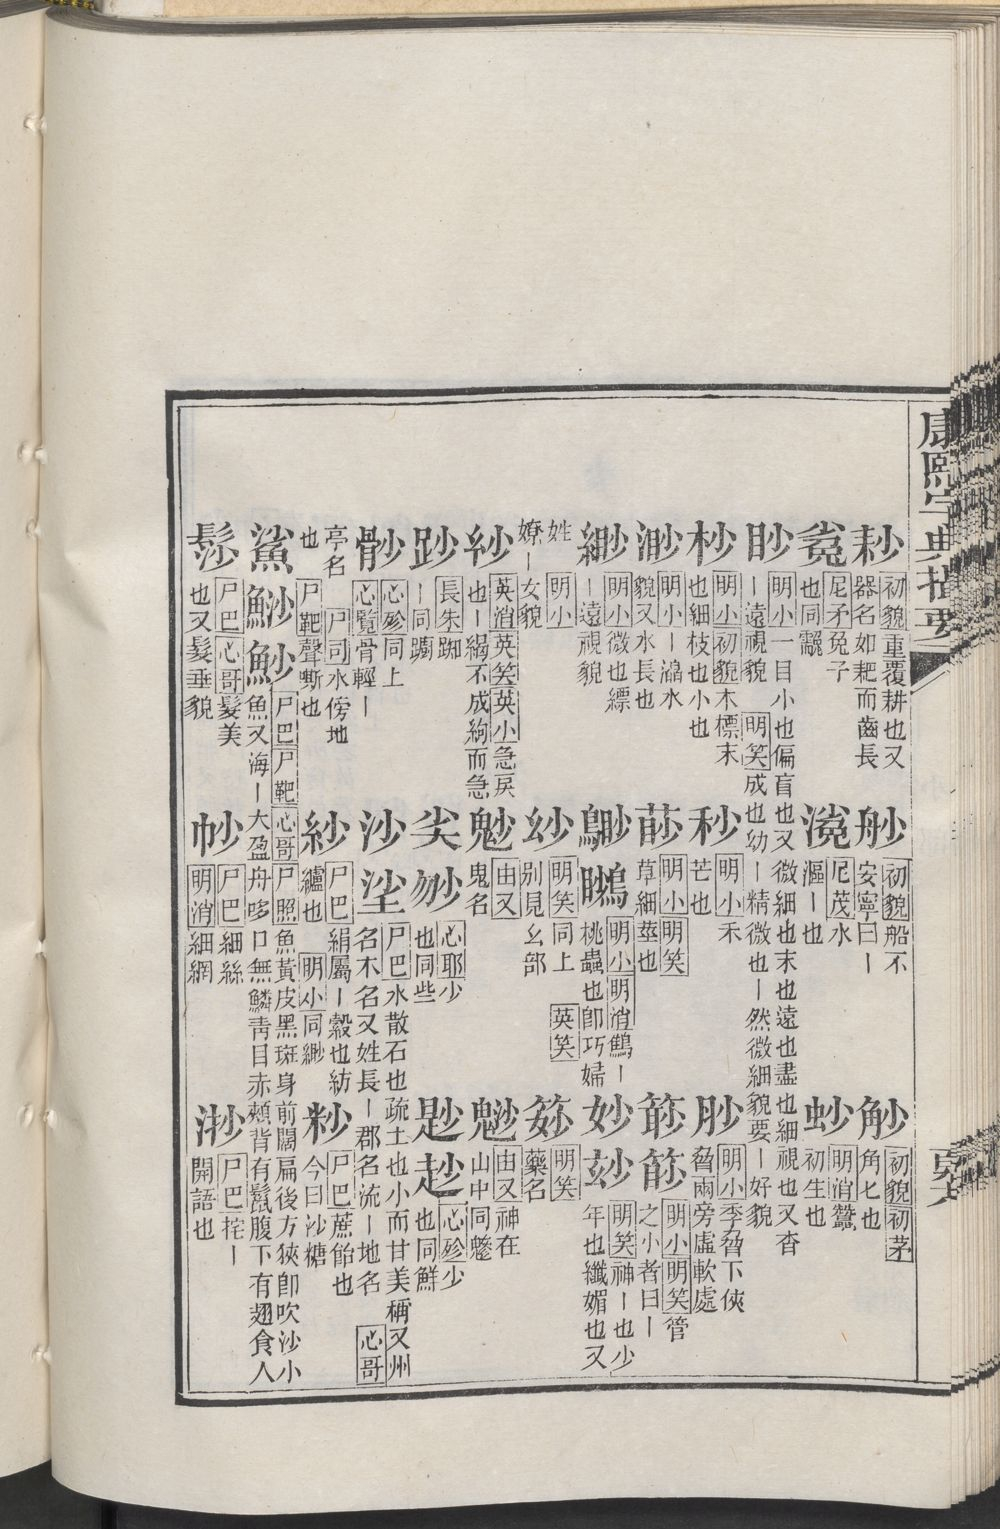 康熙字典撮要
耖 初貌重覆耕也又器名如耙而齒長
初貌船不安寧曰｜
觘 初貌初茅角匕也
尼矛兔子也同
尼茂水漚｜也
明消蠶初生也
眇 明小一目小也偏盲也又微細也末也遠也盡也細視也又杳｜遠視貌 明笑成也幼｜精微也｜然微細貌要｜好貌
杪 明小初貌木標末也細枝也小也
秒 明小禾芒也
明小季脅下俠脅兩旁虛軟處
渺 明小｜水貌又水長也
明小明笑草細莖也
明小明笑管之小者曰｜
緲 明小微也縹｜遠視貌
明小明消鷦｜桃蟲也卽巧婦
妙玅 明笑神｜也少年也纖媚也又姓 明小嫽｜女貌
明笑同上 英笑別見幺部
明笑藥名
英消英笑英小急戾也｜緆不成絇而急
由又鬼名
由又神在山中同
長朱踟｜同躅
尖
心耶少也同些
尟赻 心殄少也同鮮
心殄同上 心覽骨輕｜
沙 尸巴水散石也疏土也小而甘美稱又州名木名又姓長｜郡名流｜地名 心哥亭名 尸司水傍地也 尸靶聲嘶也
紗 尸巴絹屬｜縠也紡纑也 明小同緲
粆 尸巴蔗飴也今曰沙糖
鯊魦 尸巴尸靶心哥尸照魚黃皮黑斑身前闊扁後方狹卽吹沙小魚又海｜大盈舟哆口無鱗靑目赤頰背有鬣腹下有翅食人
髿 尸巴心哥髮美也又髮垂貌
尸巴細絲 明消細網
尸巴挓｜開語也